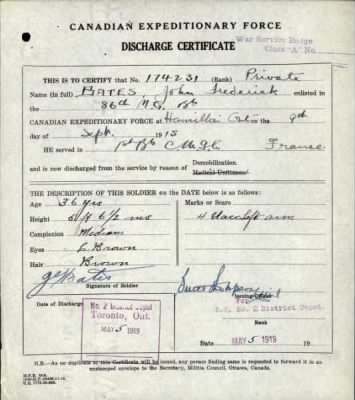 CANADIAN EXPEDITIONARY FORCE
War Service Badge
DISCHARGE CERTIFICATE
Class "A" No.
THIS IS TO CERTIFY that No. 174231 (Rank) Private
Name (in full) BATES, John Frederick enlisted in
86th M.G. Bn
CANADIAN EXPEDITIONARY FORCE at Hamilton Ont on the 9th
day of Sept. 1915
HE served in 1st Bn C.M.G. France
and is now discharged from the service by reason of Demobilization
Medical Unfitness
THE DESCRIPTION OF THIS SOLDIER on the DATE below is as follows:
Age 36 yrs Marks or Scars
Height 5 ft 6 1/2 ins 4 Vacc left arm
Complexion Medium
Eyes L. Brown
Hair Brown
Bates
Signature of Soldier
Issuing
For
Date of Discharge
No. 2 District Depot
Toronto, Ont.
MAY 5 1919
O.C. No. 2 District Depot.
Rank
MAY 5 1919 19
N.B.—As no duplicate of this Certificate will be issued, any person finding same is requested to forward it in an
unstamped envelope to the Secretary, Militia Council, Ottawa, Canada.